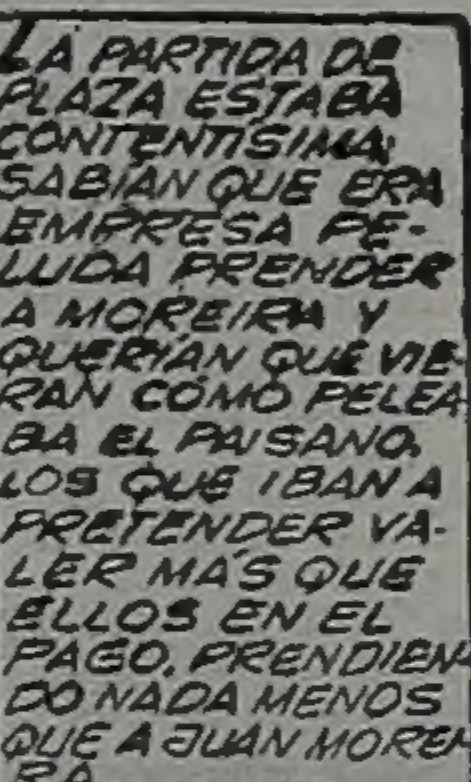 LA PARTIDA DE
PLAZA ESTABA
CONTENTÍSIMA;
SABÍAN QUE ERA
EMPRESA PE-
LUDA PRENDER
A MOREIRA Y
QUERÍAN QUE VIE-
RAN CÓMO PELEA
BA EL PAISANO,
LOS QUE IBAN A
PRETENDER VA-
LER MÁS QUE
ELLOS EN EL
PAGO, PRENDIEN-
DO NADA MENOS
QUE A JUAN MOREI
RA